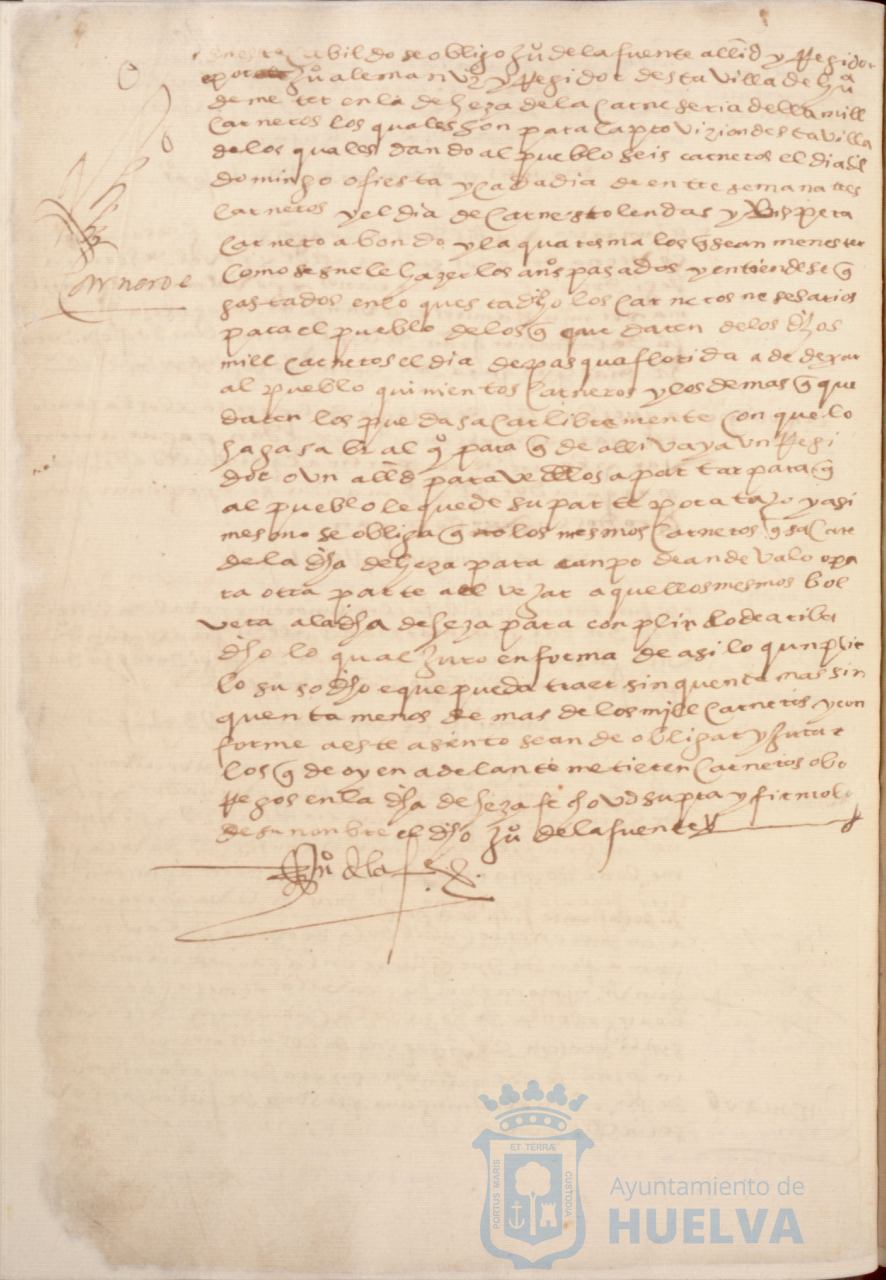 en este Cabildo se obligo Juº de la fuente alld y Regidor
e por el Juº aleman vzº y Regidor desta villa de huª
de meter en la deheza de la Carneseria della mill
Carneros los quales son para la provizion desta villa
de los quales dando al pueblo seis carneros el dia del
domingo o fiesta y cada dia de entre semana tres
Carneros y el dia de Carnestolendas y Bispera
Carnero abondo y la quaresma los q sean menester
Como se suele hazer los años pasados y entiendese q
gastados en lo questa dho los Carneros nesesarios
para el pueblo de los q que daren de los dhos
mill carneros el dia de pasqua florida a de dexar
al pueblo quinientos Carneros y los demas q que
daren los pueda sacar libremente Con que lo
haga saber al qº para q de alli vaya un Regi
dor o un alld para vellos apartar para q
al pueblo le quede su parte por ratazo y asi
mesmo se obliga q los mesmos Carneros q sacare
de la dha deheza para canpo de andevalo o pa
ra otra parte a aquellos mesmos bol
vera a la dha deheza para conplir lo de arriba
dho lo qual Juro en forma de asi lo qunplir
lo su so dho e que pueda traer sinquenta mas sin
quenta menos de mas de los mill Carneros y con
forme a este asiento sean de obligar y Jurar
los q de oy en adelante metieren Carneros o bo
Regos en la dha deheza fecho ud supra y firmolo
de su nonbre el dho Juº de la fuente
Juº de la fe
Carneros
PORTUS MARIS
ET TERRÆ
CUSTODIA
Ayuntamiento de
HUELVA